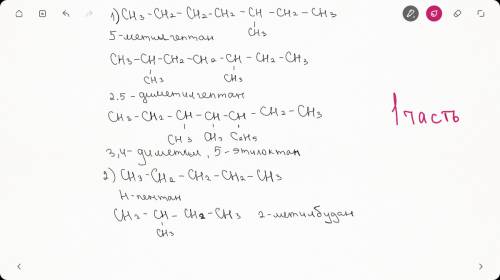 1) CH3-CH2-CH2-CH2-CH-CH2-CH3
CH3
5-метилгептан
CH3-CH-CH2-CH2-CH-CH2-CH3
CH3 CH3
2.5-диметилгептан
CH3-CH2-CH-CH-CH-CH2-CH3
CH3 CH3 C2H5
3,4-диметил, 5-этилоктан
2) CH3-CH2-CH2-CH2-CH3
Н-пентан
CH3-CH-CH2-CH3 2-метилбудан
CH3
1 часть